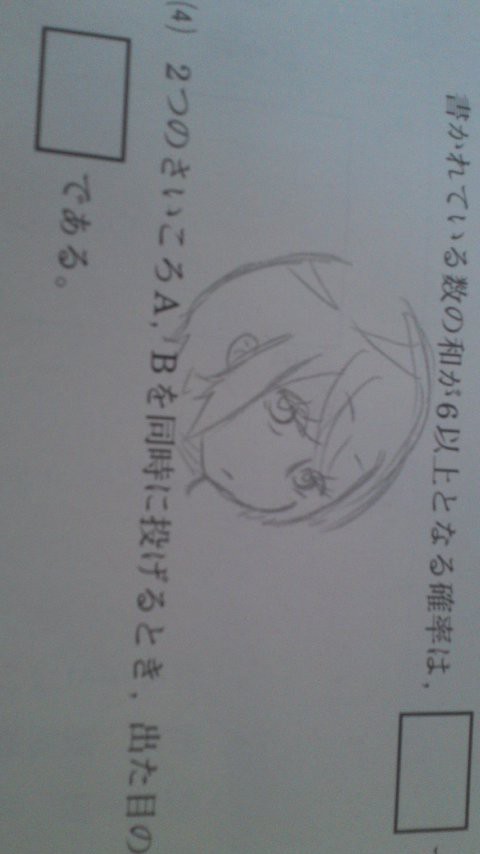 書かれている数の和が6以上となる確率は,
(4) 2つのさいころA,Bを同時に投げるとき,出た目の
である。